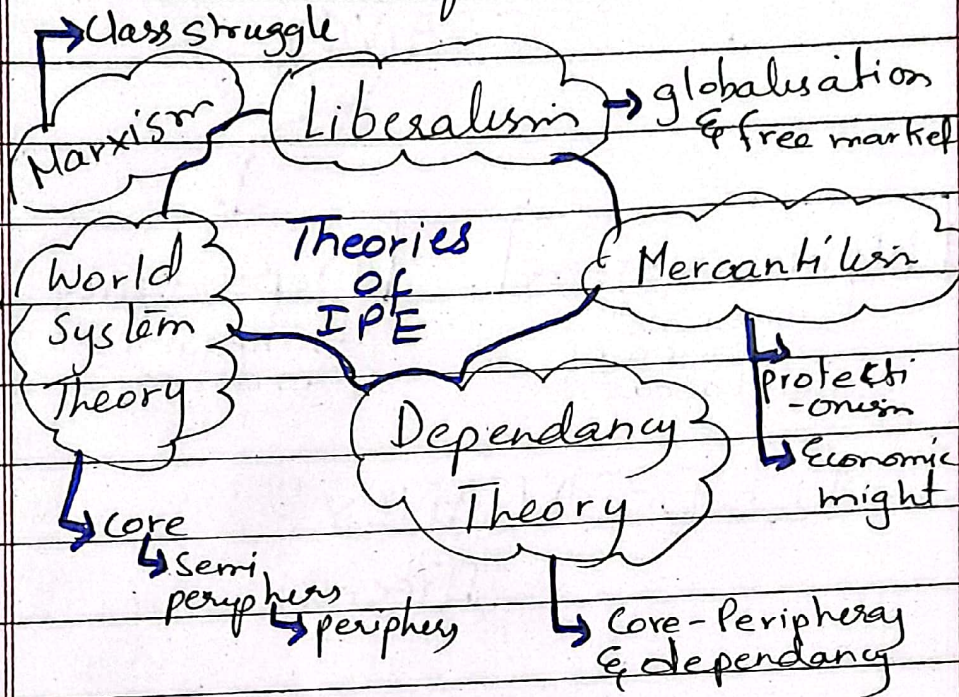 Class struggle
Marxism
Liberalism
globalisation
& free market
World
System
Theory
Theories
Of
IPE
Mercantilism
protecti
-onism
Economic
might
Dependancy
Theory
core
Semi
periphery
periphery
Core-Periphery
& dependancy